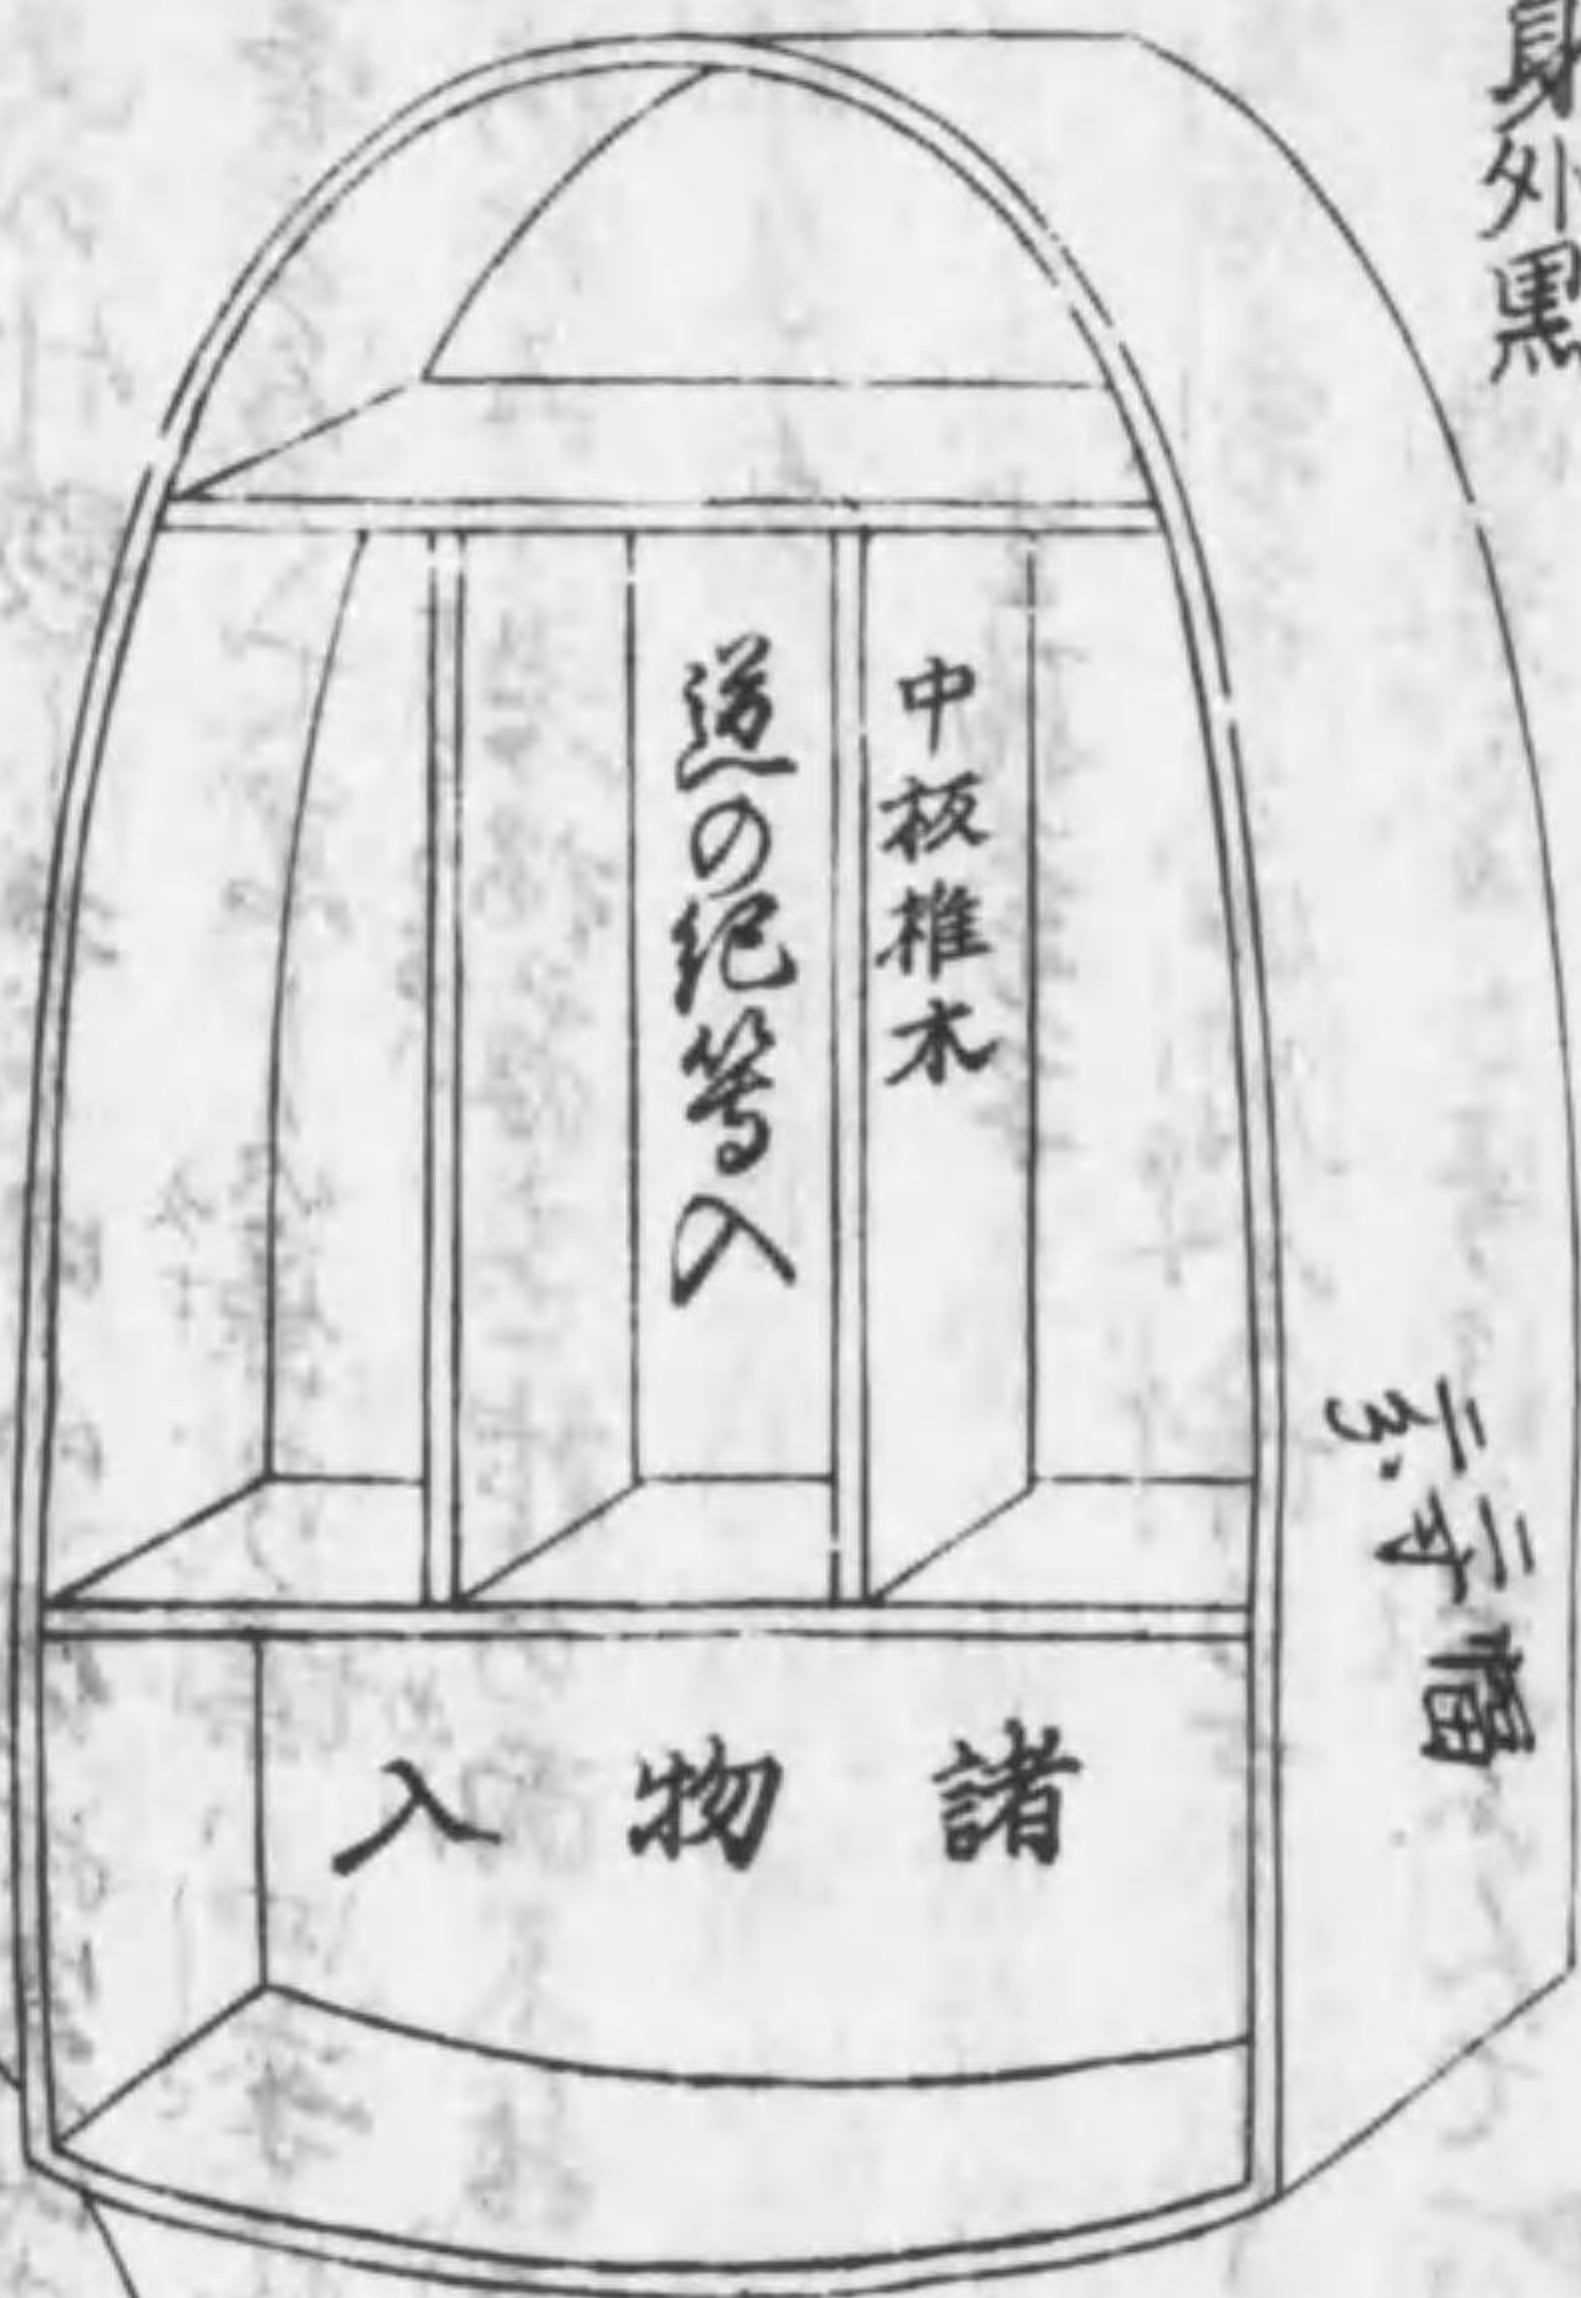 身外黒
中板椎木
道の紀等入
幅二寸二分
諸物入